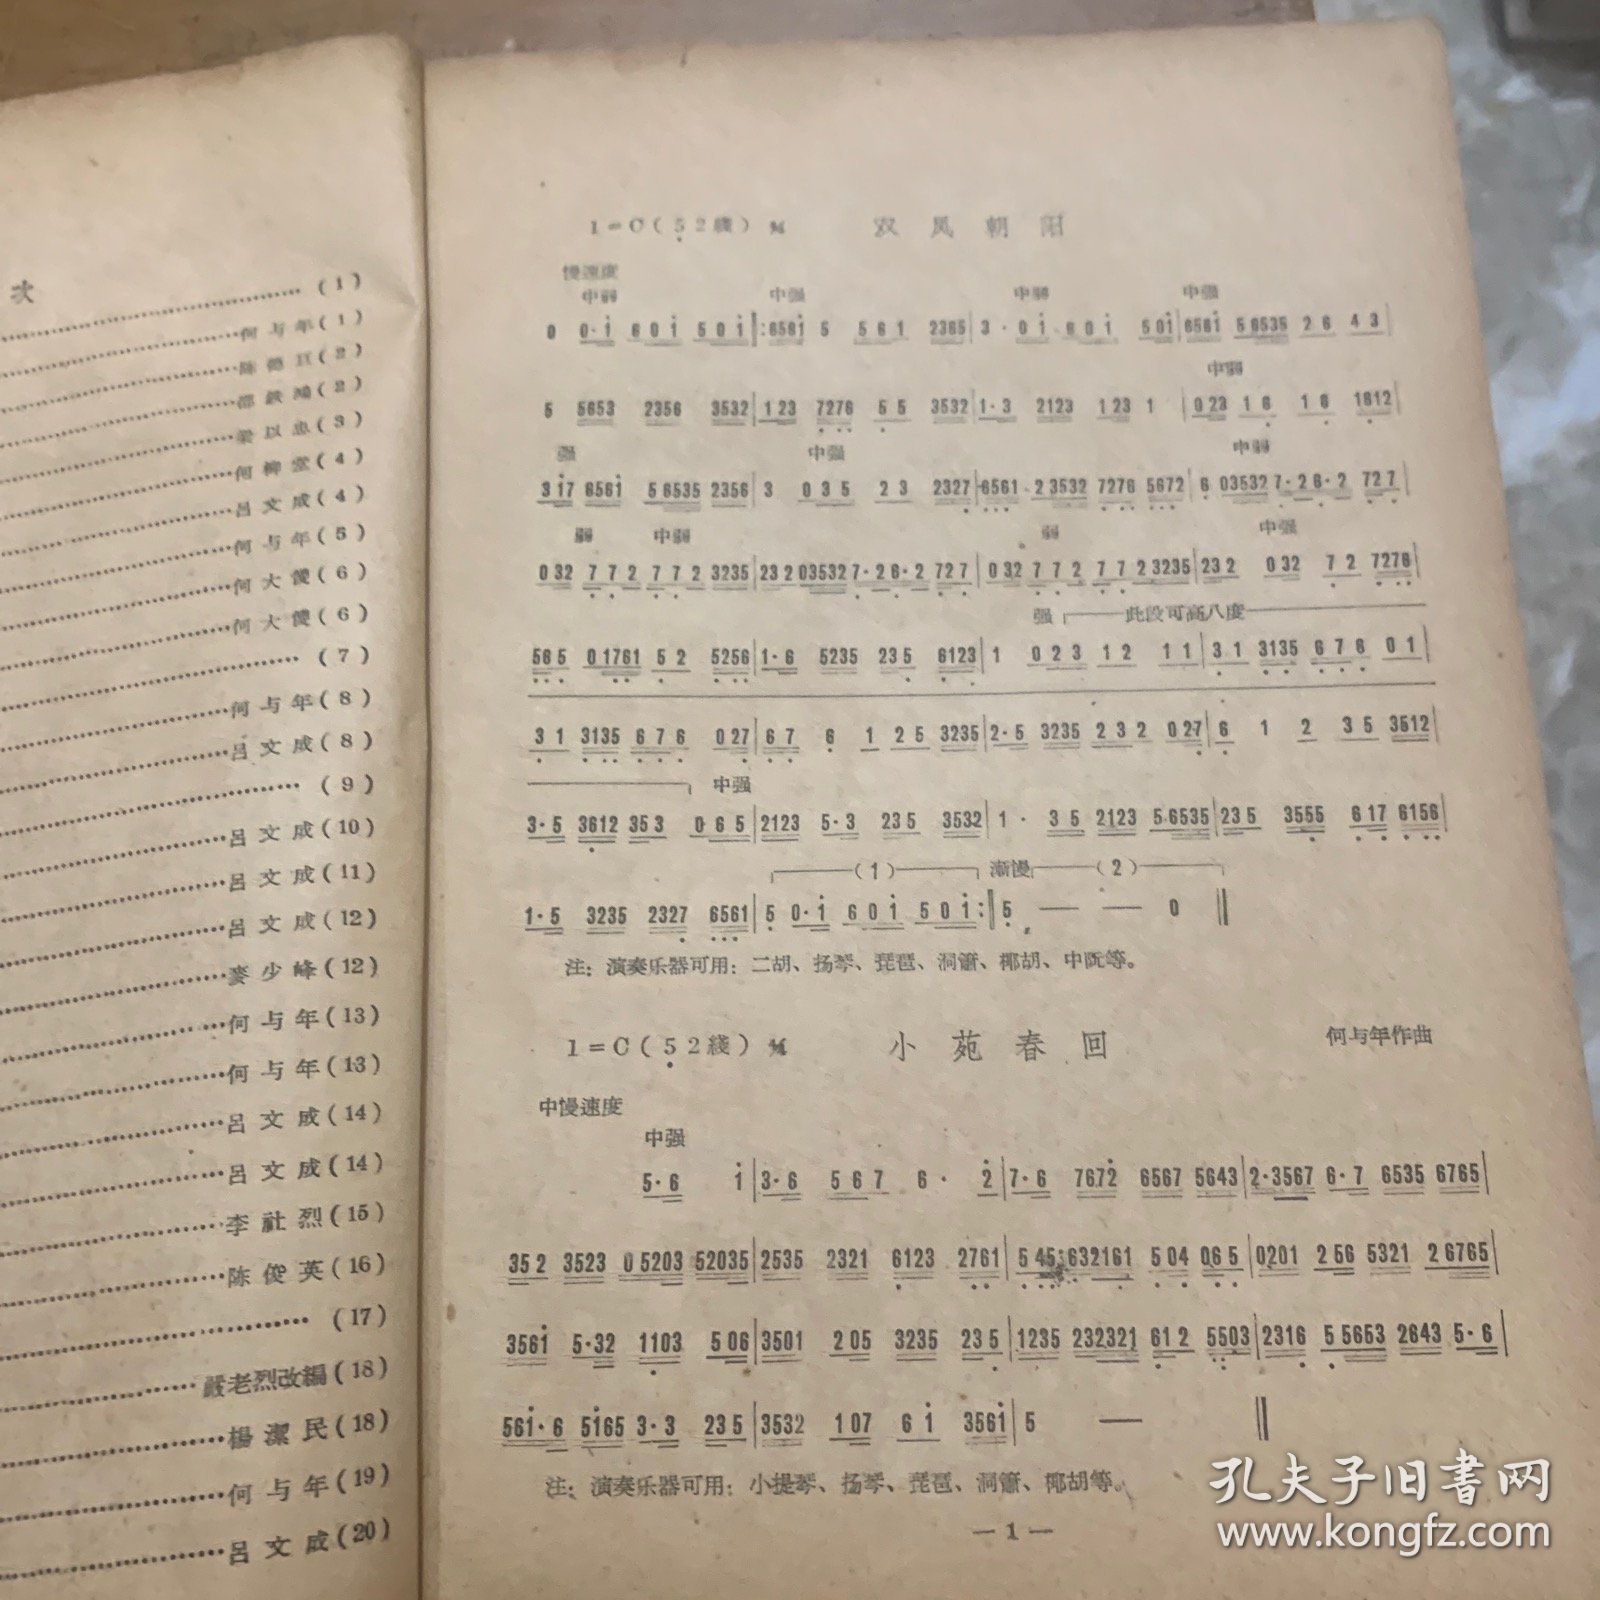 次
(1)
何与年(1)
(2)
(2)
梁以忠(3)
何柳堂(4)
吕文成(4)
何与年(5)
何大傻(6)
何大傻(6)
(7)
何与年(8)
吕文成(8)
(9)
吕文成(10)
吕文成(11)
吕文成(12)
麥少峰(12)
何与年(13)
何与年(13)
吕文成(14)
吕文成(14)
李社烈(15)
陈俊英(16)
(17)
嚴老烈改編(18)
楊潔民(18)
何与年(19)
吕文成(20)
1=C(5 2綫) 4/4 双凤朝阳
慢速度
中弱 中强 中弱 中强
0 0·1 601 501 ‖:6561 5 561 2365 | 3·01 601 501 | 6561 56535 26 43 |
中弱
5 5653 2356 3532 | 123 7276 55 3532 | 1·3 2123 123 1 | 023 16 16 1612 |
强 中强 中弱
317 6561 56535 2356 | 3 035 23 2327 | 6561 23532 7276 5672 | 6 03532 7·26·2 727 |
弱 中弱 弱 中强
032 772 772 3235 | 232 03532 7·26·2 727 | 032 772 77 23235 | 232 032 72 7276 |
强 此段可高八度
565 01761 52 5256 | 1·6 5235 235 6123 | 1 023 12 11 | 31 3135 676 01 |
31 3135 676 027 | 67 6 1 25 3235 | 2·5 3235 232 027 | 6 1 2 35 3512 |
中强
3·5 3612 353 065 | 2123 5·3 235 3532 | 1· 35 2123 56535 | 235 3555 617 6156 |
(1) 漸慢 (2)
1·5 3235 2327 6561 | 5 0·1 601 501 :‖ 5 — — 0 ‖
注：演奏乐器可用：二胡、扬琴、琵琶、洞簫、椰胡、中阮等。
1=C(5 2綫) 4/4 小苑春回 何与年作曲
中慢速度
中强
5·6 1 | 3·6 567 6· 2 | 7·6 7672 6567 5643 | 2·3567 6·7 6535 6765 |
352 3523 05203 52035 | 2535 2321 6123 2761 | 545 632161 504 065 | 0201 256 5321 26765 |
3561 5·32 1103 506 | 3501 205 3235 235 | 1235 232321 612 5503 | 2316 55653 2643 5·6 |
561·6 5165 3·3 235 | 3532 107 61 3561 | 5 — ‖
注：演奏乐器可用：小提琴、扬琴、琵琶、洞簫、椰胡等。
—1—
孔夫子旧書网
www.kongfz.com